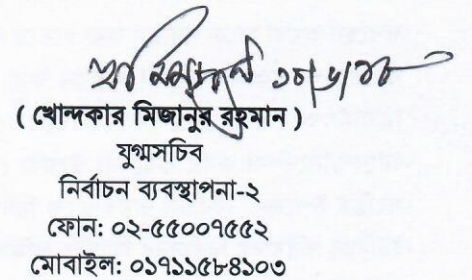 ( খোন্দকার মিজানুর রহমান )
যুগ্মসচিব
নির্বাচন ব্যবস্থাপনা-২
ফোন: ০২-৫৫০০৭৫৫২
মোবাইল: ০১৭১১৫৮৪১০৩